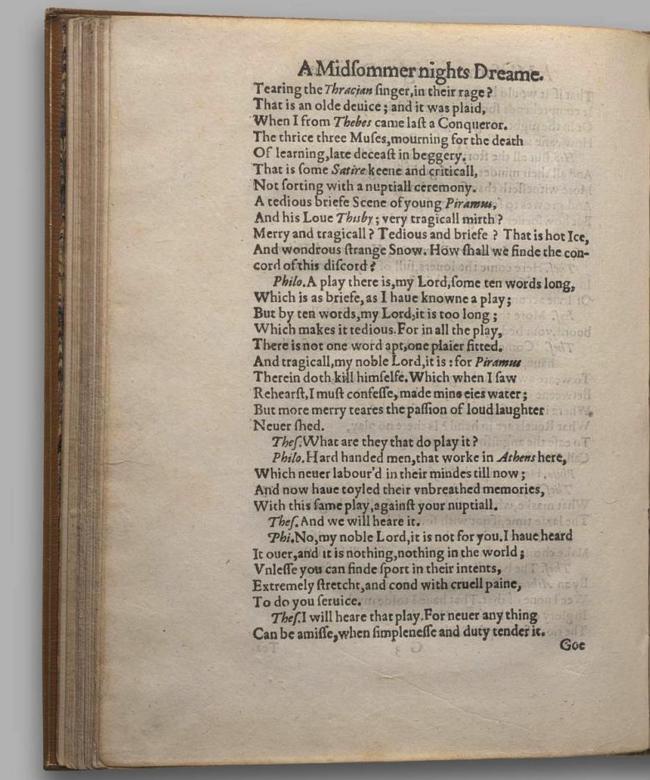 A Midſommer nights Dreame.
Tearing the Thracian ſinger, in their rage?
That is an olde deuice; and it was plaid,
When I from Thebes came laſt a Conqueror.
The thrice three Muſes, mourning for the death
Of learning, late deceaſt in beggery.
That is ſome Satire keene and criticall,
Not ſorting with a nuptiall ceremony.
A tedious briefe Scene of young Piramus,
And his Loue Thisby; very tragicall mirth?
Merry and tragicall? Tedious and briefe? That is hot Ice,
And wondrous ſtrange Snow. How ſhall we finde the con-
cord of this diſcord?
Philo. A play there is, my Lord, ſome ten words long,
Which is as briefe, as I haue knowne a play;
But by ten words, my Lord, it is too long;
Which makes it tedious. For in all the play,
There is not one word apt, one plaier fitted.
And tragicall, my noble Lord, it is: for Piramus
Therein doth kill himſelfe. Which when I ſaw
Rehearſt, I muſt confeſſe, made mine eies water;
But more merry teares the paſſion of loud laughter
Neuer ſhed.
Theſ. What are they that do play it?
Philo. Hard handed men, that worke in Athens here,
Which neuer labour'd in their mindes till now;
And now haue toyled their vnbreathed memories,
With this ſame play, againſt your nuptiall.
Theſ. And we will heare it.
Phi. No, my noble Lord, it is not for you. I haue heard
It ouer, and it is nothing, nothing in the world;
Vnleſſe you can finde ſport in their intents,
Extremely ſtretcht, and cond with cruell paine,
To do you ſeruice.
Theſ. I will heare that play. For neuer any thing
Can be amiſſe, when ſimpleneſſe and duty tender it.
Goe